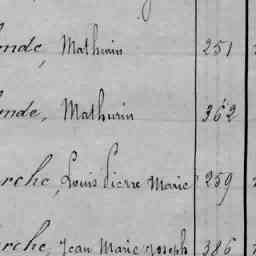 onde, Mathurin 251
onde, Mathurin 362
arche, Louis Pierre Marie 259
arche, Jean Marie Joseph 386